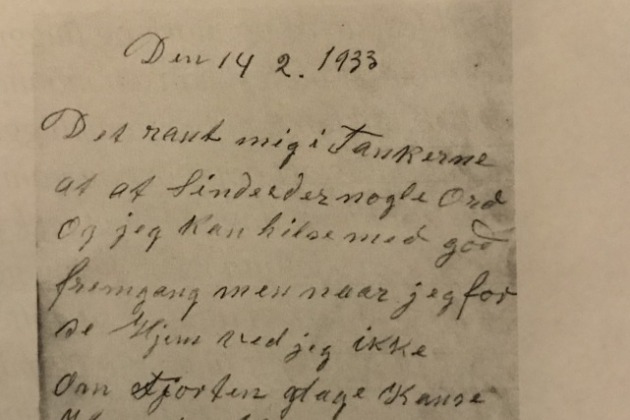 Den 14 2. 1933
Det rant mig i Tankerne
at at sinde eder nogle Ord
Og jeg kan hilse med god
fremgang men naar jeg for
se Hjem ved jeg ikke
Om fjorten dage Kanse